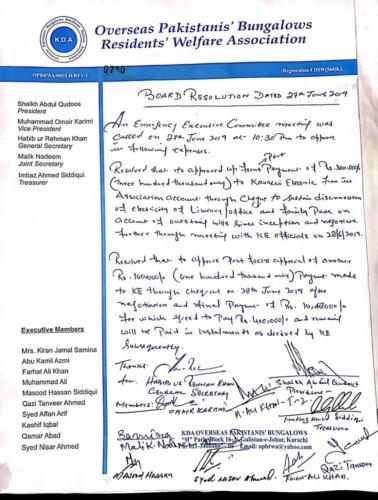 KDA
Overseas Pakistanis' Bungalows
Residents' Welfare Association
OPBRWA/005/LH/REV-1
(Registration # DSW(564)K)
Shaikh Abdul Qudoos
President
Muhammad Omair Karimi
Vice President
Habib ur Rehman Khan
General Secretary
Malik Nadeem
Joint Secretary
Imtiaz Ahmed Siddiqui
Treasurer
Executive Members
Mrs. Kiran Jamal Samina
Abu Kamil Azmi
Farhat Ali Khan
Muhammad Ali
Masood Hassan Siddiqui
Qazi Tanveer Ahmed
Syed Affan Arif
Kashif Iqbal
Qamar Abad
Syed Nisar Ahmed
BOARD RESOLUTION DATED 27th JUNE 2019
An Emergency Executive Committee meeting was
called on 27th June 2019 at 10:30 PM to approve
in following expenses.
Resolved that to approved up front Part Payment of Rs. 300,000/
(Three hundred thousand only) to Karachi Electric from the
Association account through Cheque to disconnection
of electricity of Library/office and family Park on
account of since inception and negotiate
further through meeting with KE officials on 28/6/2019.
Resolved that to approve Post facto approval of another
Rs. 100,000/ (one hundred thousand only) Payment made
to KE through cheque on 28th June 2019 after
negotiation and final Payment of Rs.
for which agreed to Pay Rs. and remain
will be Paid in instalments as by KE
Subsequently.
Thanks
for. HABIB UR REHMAN KHAN
GENERAL SECRETARY
Shaikh Abdul Qudoos
President
Members:
OMAIR KARIMI
Imtiaz Ahmed Siddiqui
TREASURER
Samina
KDA OVERSEAS PAKISTANIS' BUNGALOWS
"H" Park Block 16-A Gulistan-e-Johar, Karachi
Email: opbrwa@yahoo.com
Malik Nadeem
MASOOD HASSAN
SYED NISAR AHMED
FARHAT ALI KHAN
QAZI TANVEER